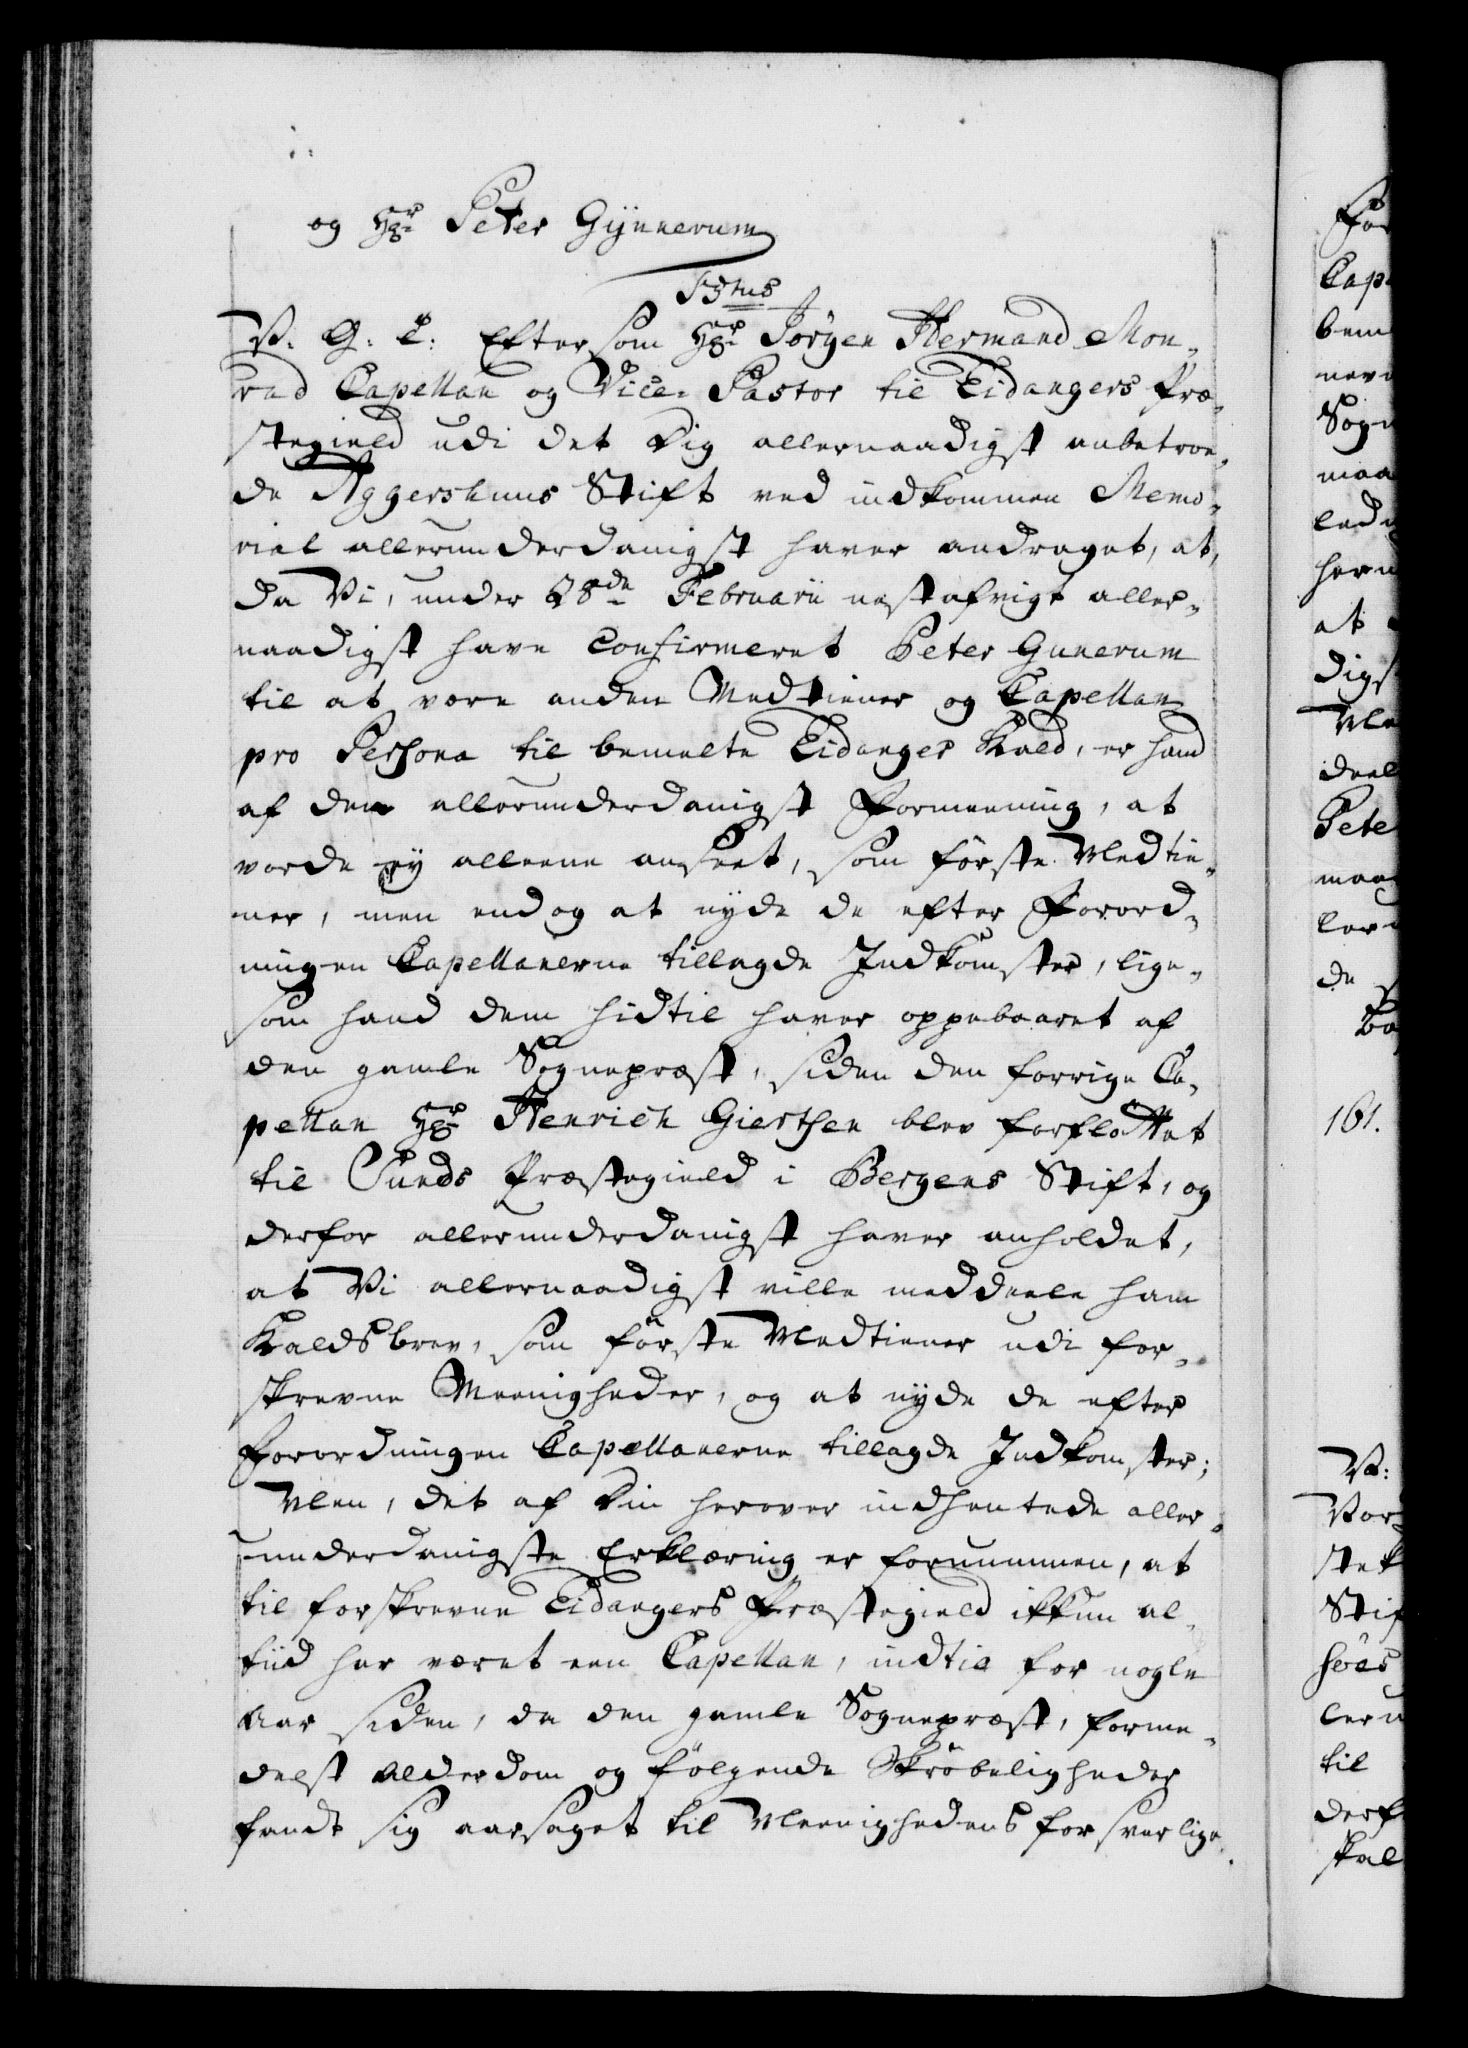 og Hr: Peter Gynnerum
F3tus
V. G. T: Eftersom Hr: Jørgen Hermand Mon-
rad Capellan og Vice-Pastor til Eidangers Præ-
stegield udi det Dig allernaadigst anbetroe-
de Aggershuus Stift ved indkommen Memo-
rial allerunderdanigst haver andraget, at,
da Vi, under 28de Februarii nestafvigt aller-
naadigst have Confirmeret Peter Gunerum
til at være anden Medtiener og Capellan
pro Persona til bemelte Eidanger Kald, er hand
af den allerunderdanigst Formeening, at
vorde ey alleene anseet, som første Medtie-
ner, men endog at nyde de efter Forord-
ningen Capellanerne tillagde Indkomster, lige-
som hand dem hidtil haver oppebaaret af
den gamle Sognepræst, siden den forrige Ca-
pellan Hr: Henrich Giertsen blev forfløttet
til Sunds Præstegield i Bergens Stift, og
derfor allerunderdanigst haver anholdet,
at Vi allernaadigst ville meddeele ham
Kaldsbrev, som første Medtiener udi for-
skrevne Meenigheder, og at nyde de efter
Forordningen Capellanerne tillagde Indkomster;
Men, det af Din herover indhentede aller-
underdanigste Erklæring er fornummen, at
til forskrevne Eidangers Præstegield ikkun al-
tiid har været een Capellan, indtil for nogle
Aar siden, da den gamle Sognepræst, forme-
delst Alderdom og følgende Skrøbeligheder
fandt sig aarsaget til Meenighedens forsvarlige
161.